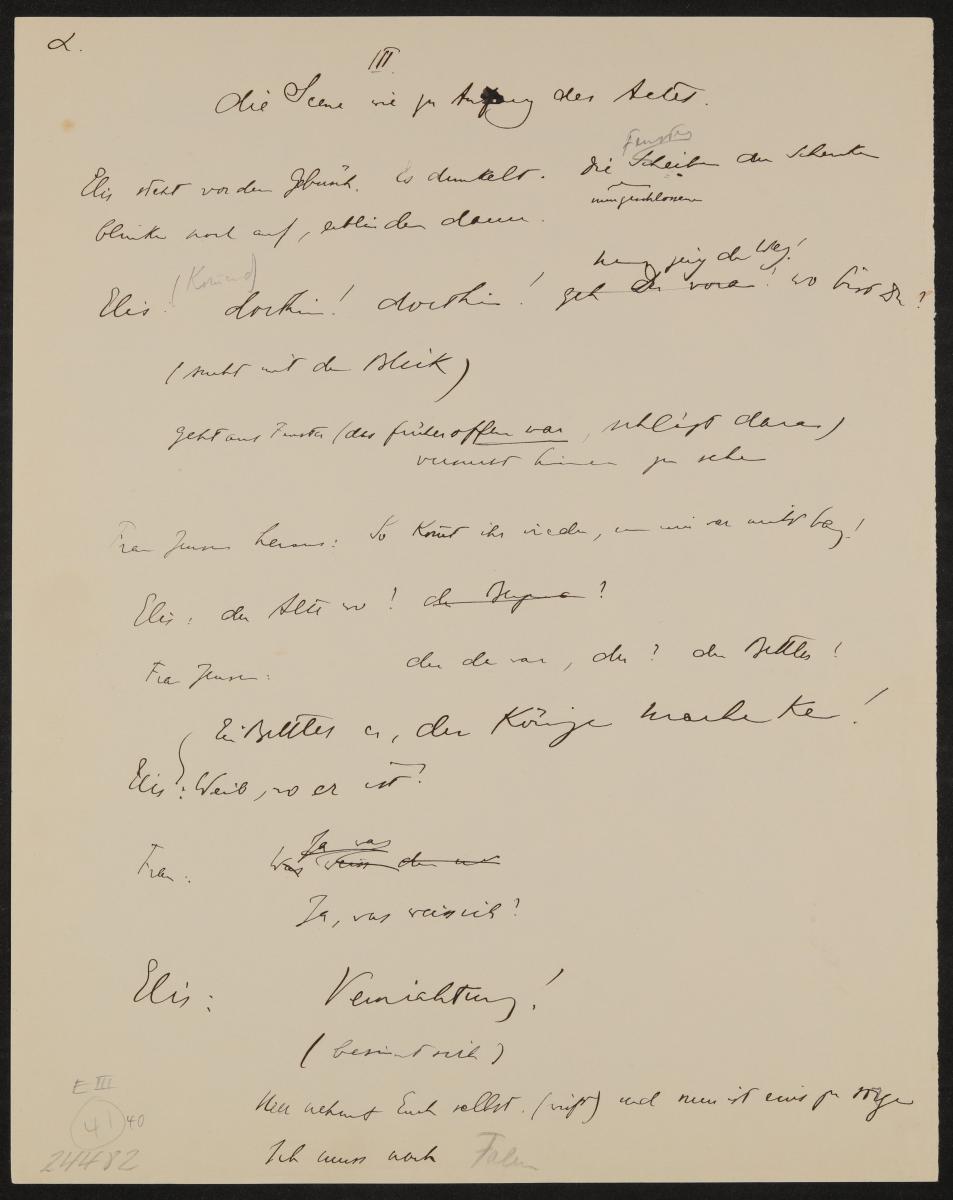 α.
III
die Scene wie zu Anfang des Actes.
Fenster
Elis steht vor dem Gebüsch. Es dunkelt. Die Scheiben der Schenke
nun geschlossenen
blinken noch auf, erblinden dann.
ging der Weg!
(Konrad)
Elis: dorthin! dorthin! geh Du voran! wo bist Du?
(sucht mit dem Blick)
geht ans Fenster (das früher offen war, schlägt daran)
versucht hinein zu sehen
Frau Jensen heraus: So kommt ihr wieder,
Elis: der Alte wo! der ?
Frau Jensen: der da war, der? der Bettler!
Ein Bettler er, der Könige machte!
Elis: Weib, wo er ist?
Ja was
Frau: Was weiss
Ja, was weiss ich?
Elis: Vernichtung!
(besinnt sich)
nehmt Euch selbst. (wirft) und nun ist eins zu
Ich muss nach Falun
E III
41 40
24482